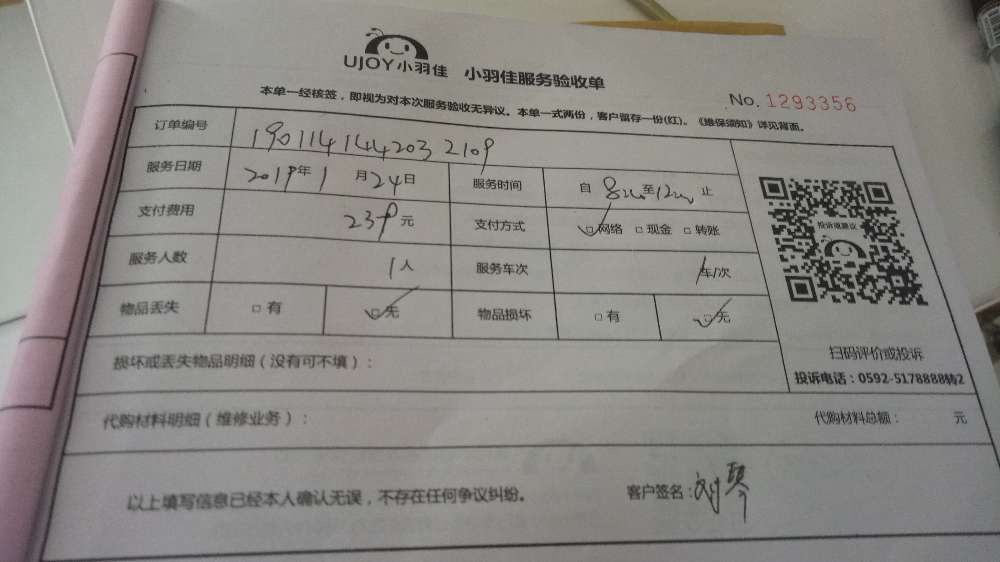 UJOY小羽佳 小羽佳服务验收单
No. 1293356
本单一经核签，即视为对本次服务验收无异议。本单一式两份，客户留存一份(红)。《维保须知》详见背面。
订单编号 190114144203 2109
服务日期 2019年1月24日 服务时间 自 8:00 至 12:00 止
支付费用 239元 支付方式 ☑网络 □现金 □转账
服务人数 1人 服务车次 /车/次
物品丢失 □有 ☑无 物品损坏 □有 ☑无
投诉或建议
扫码评价或投诉
投诉电话：0592-5178888转2
损坏或丢失物品明细（没有可不填）：
代购材料明细（维修业务）： 代购材料总额： 元
以上填写信息已经本人确认无误，不存在任何争议纠纷。 客户签名：刘琴